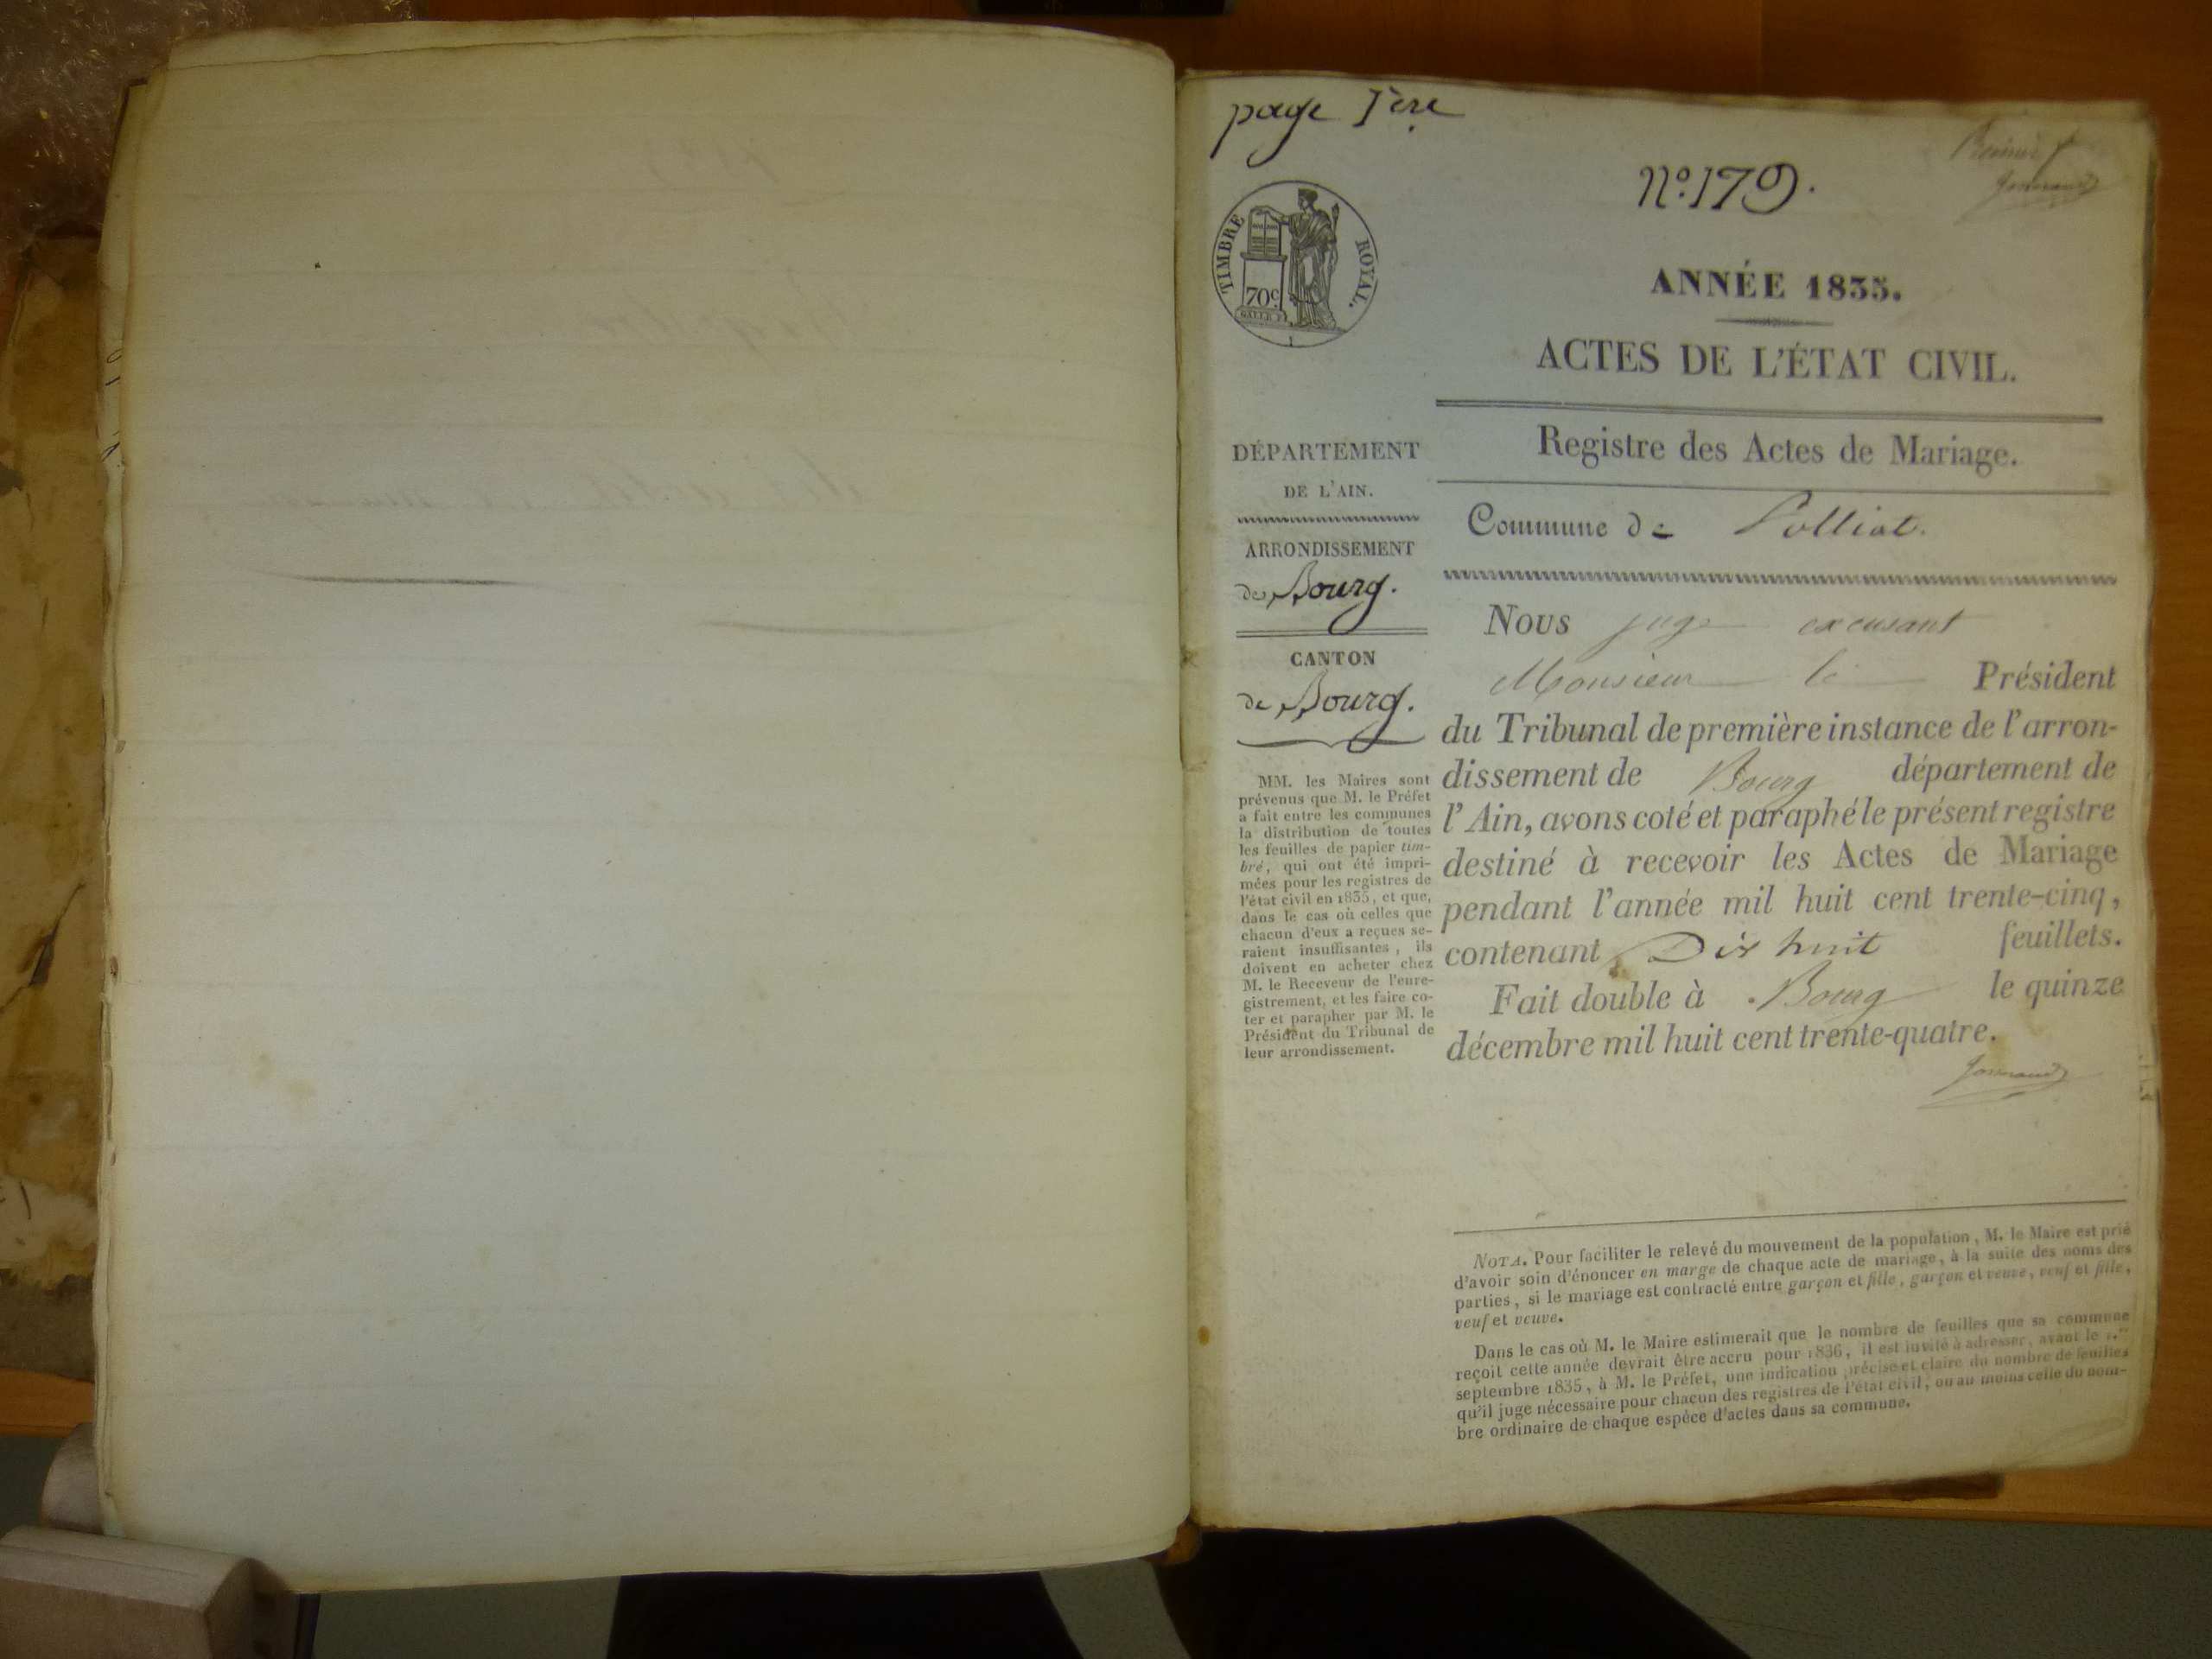 page 1ère
N°. 179.
TIMBRE ROYAL.
70c
ANNÉE 1835.
ACTES DE L'ÉTAT CIVIL.
Registre des Actes de Mariage.
Commune de Polliat.
DÉPARTEMENT
DE L'AIN.
ARRONDISSEMENT
de Bourg.
CANTON
de Bourg.
MM. les Maires sont
prévenus que M. le Préfet
a fait entre les communes
la distribution de toutes
les feuilles de papier tim-
bré, qui ont été impri-
mées pour les registres de
l'état civil en 1835, et que,
dans le cas où celles que
chacun d'eux a reçues se-
raient insuffisantes, ils
doivent en acheter chez
M. le Receveur de l'enre-
gistrement, et les faire co-
ter et parapher par M. le
Président du Tribunal de
leur arrondissement.
Nous juge excusant
Monsieur le Président
du Tribunal de première instance de l'arron-
dissement de Bourg département de
l'Ain, avons coté et paraphé le présent registre
destiné à recevoir les Actes de Mariage
pendant l'année mil huit cent trente-cinq,
contenant Dix huit feuillets.
Fait double à Bourg le quinze
décembre mil huit cent trente-quatre.
NOTA. Pour faciliter le relevé du mouvement de la population, M. le Maire est prié
d'avoir soin d'énoncer en marge de chaque acte de mariage, à la suite des noms des
parties, si le mariage est contracté entre garçon et fille, garçon et veuve, veuf et fille,
veuf et veuve.
Dans le cas où M. le Maire estimerait que le nombre de feuilles que sa commune
reçoit cette année devrait être accru pour 1836, il est invité à adresser, avant le 1.er
septembre 1835, à M. le Préfet, une indication précise et claire du nombre de feuilles
qu'il juge nécessaire pour chacun des registres de l'état civil, ou au moins celle du nom-
bre ordinaire de chaque espèce d'actes dans sa commune.